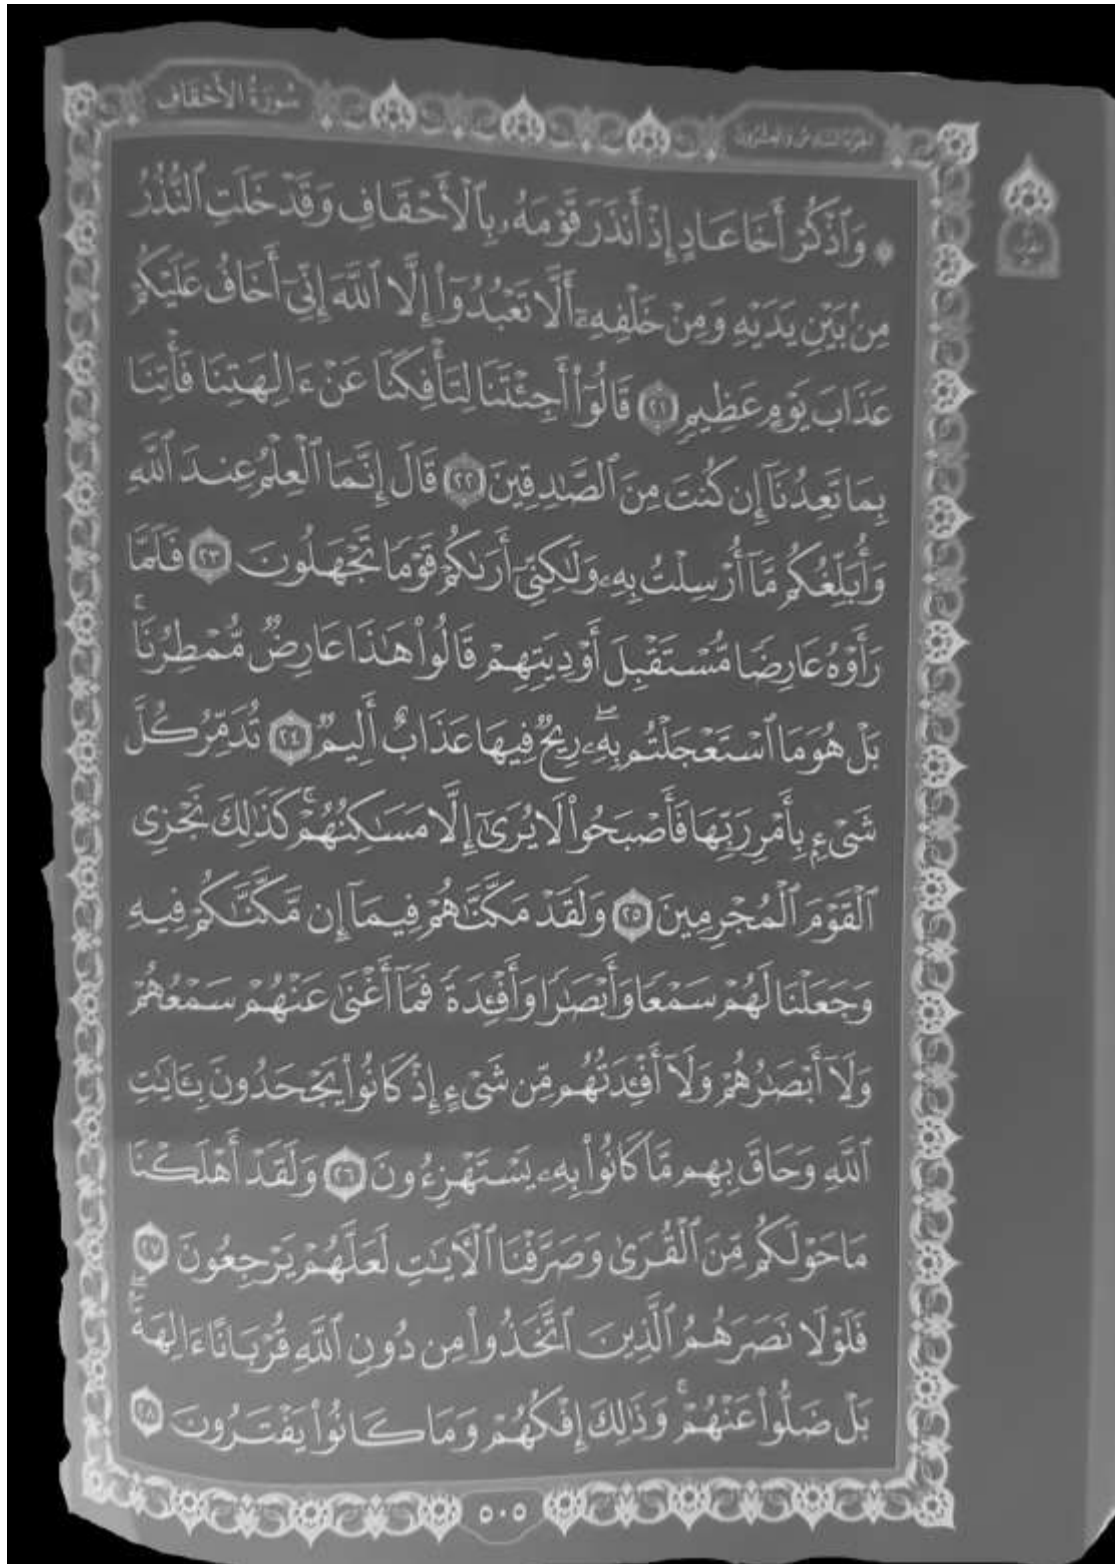 سُورَةُ الأَحْقَافِ
الجُزْءُ السَّادِسُ وَالعِشْرُونَ
۞ وَٱذْكُرْ أَخَا عَادٍ إِذْ أَنذَرَ قَوْمَهُۥ بِٱلْأَحْقَافِ وَقَدْ خَلَتِ ٱلنُّذُرُ
مِنۢ بَيْنِ يَدَيْهِ وَمِنْ خَلْفِهِۦٓ أَلَّا تَعْبُدُوٓا۟ إِلَّا ٱللَّهَ إِنِّىٓ أَخَافُ عَلَيْكُمْ
عَذَابَ يَوْمٍ عَظِيمٍ ٢١ قَالُوٓا۟ أَجِئْتَنَا لِتَأْفِكَنَا عَنْ ءَالِهَتِنَا فَأْتِنَا
بِمَا تَعِدُنَآ إِن كُنتَ مِنَ ٱلصَّٰدِقِينَ ٢٢ قَالَ إِنَّمَا ٱلْعِلْمُ عِندَ ٱللَّهِ
وَأُبَلِّغُكُم مَّآ أُرْسِلْتُ بِهِۦ وَلَٰكِنِّىٓ أَرَىٰكُمْ قَوْمًا تَجْهَلُونَ ٢٣ فَلَمَّا
رَأَوْهُ عَارِضًا مُّسْتَقْبِلَ أَوْدِيَتِهِمْ قَالُوا۟ هَٰذَا عَارِضٌ مُّمْطِرُنَا ۚ
بَلْ هُوَ مَا ٱسْتَعْجَلْتُم بِهِۦ ۖ رِيحٌ فِيهَا عَذَابٌ أَلِيمٌ ٢٤ تُدَمِّرُ كُلَّ
شَىْءٍۭ بِأَمْرِ رَبِّهَا فَأَصْبَحُوا۟ لَا يُرَىٰٓ إِلَّا مَسَٰكِنُهُمْ ۚ كَذَٰلِكَ نَجْزِى
ٱلْقَوْمَ ٱلْمُجْرِمِينَ ٢٥ وَلَقَدْ مَكَّنَّٰهُمْ فِيمَآ إِن مَّكَّنَّٰكُمْ فِيهِ
وَجَعَلْنَا لَهُمْ سَمْعًا وَأَبْصَٰرًا وَأَفْـِٔدَةً فَمَآ أَغْنَىٰ عَنْهُمْ سَمْعُهُمْ
وَلَآ أَبْصَٰرُهُمْ وَلَآ أَفْـِٔدَتُهُم مِّن شَىْءٍ إِذْ كَانُوا۟ يَجْحَدُونَ بِـَٔايَٰتِ
ٱللَّهِ وَحَاقَ بِهِم مَّا كَانُوا۟ بِهِۦ يَسْتَهْزِءُونَ ٢٦ وَلَقَدْ أَهْلَكْنَا
مَا حَوْلَكُم مِّنَ ٱلْقُرَىٰ وَصَرَّفْنَا ٱلْـَٔايَٰتِ لَعَلَّهُمْ يَرْجِعُونَ ٢٧
فَلَوْلَا نَصَرَهُمُ ٱلَّذِينَ ٱتَّخَذُوا۟ مِن دُونِ ٱللَّهِ قُرْبَانًا ءَالِهَةًۢ ۖ
بَلْ ضَلُّوا۟ عَنْهُمْ ۚ وَذَٰلِكَ إِفْكُهُمْ وَمَا كَانُوا۟ يَفْتَرُونَ ٢٨
٥٠٥